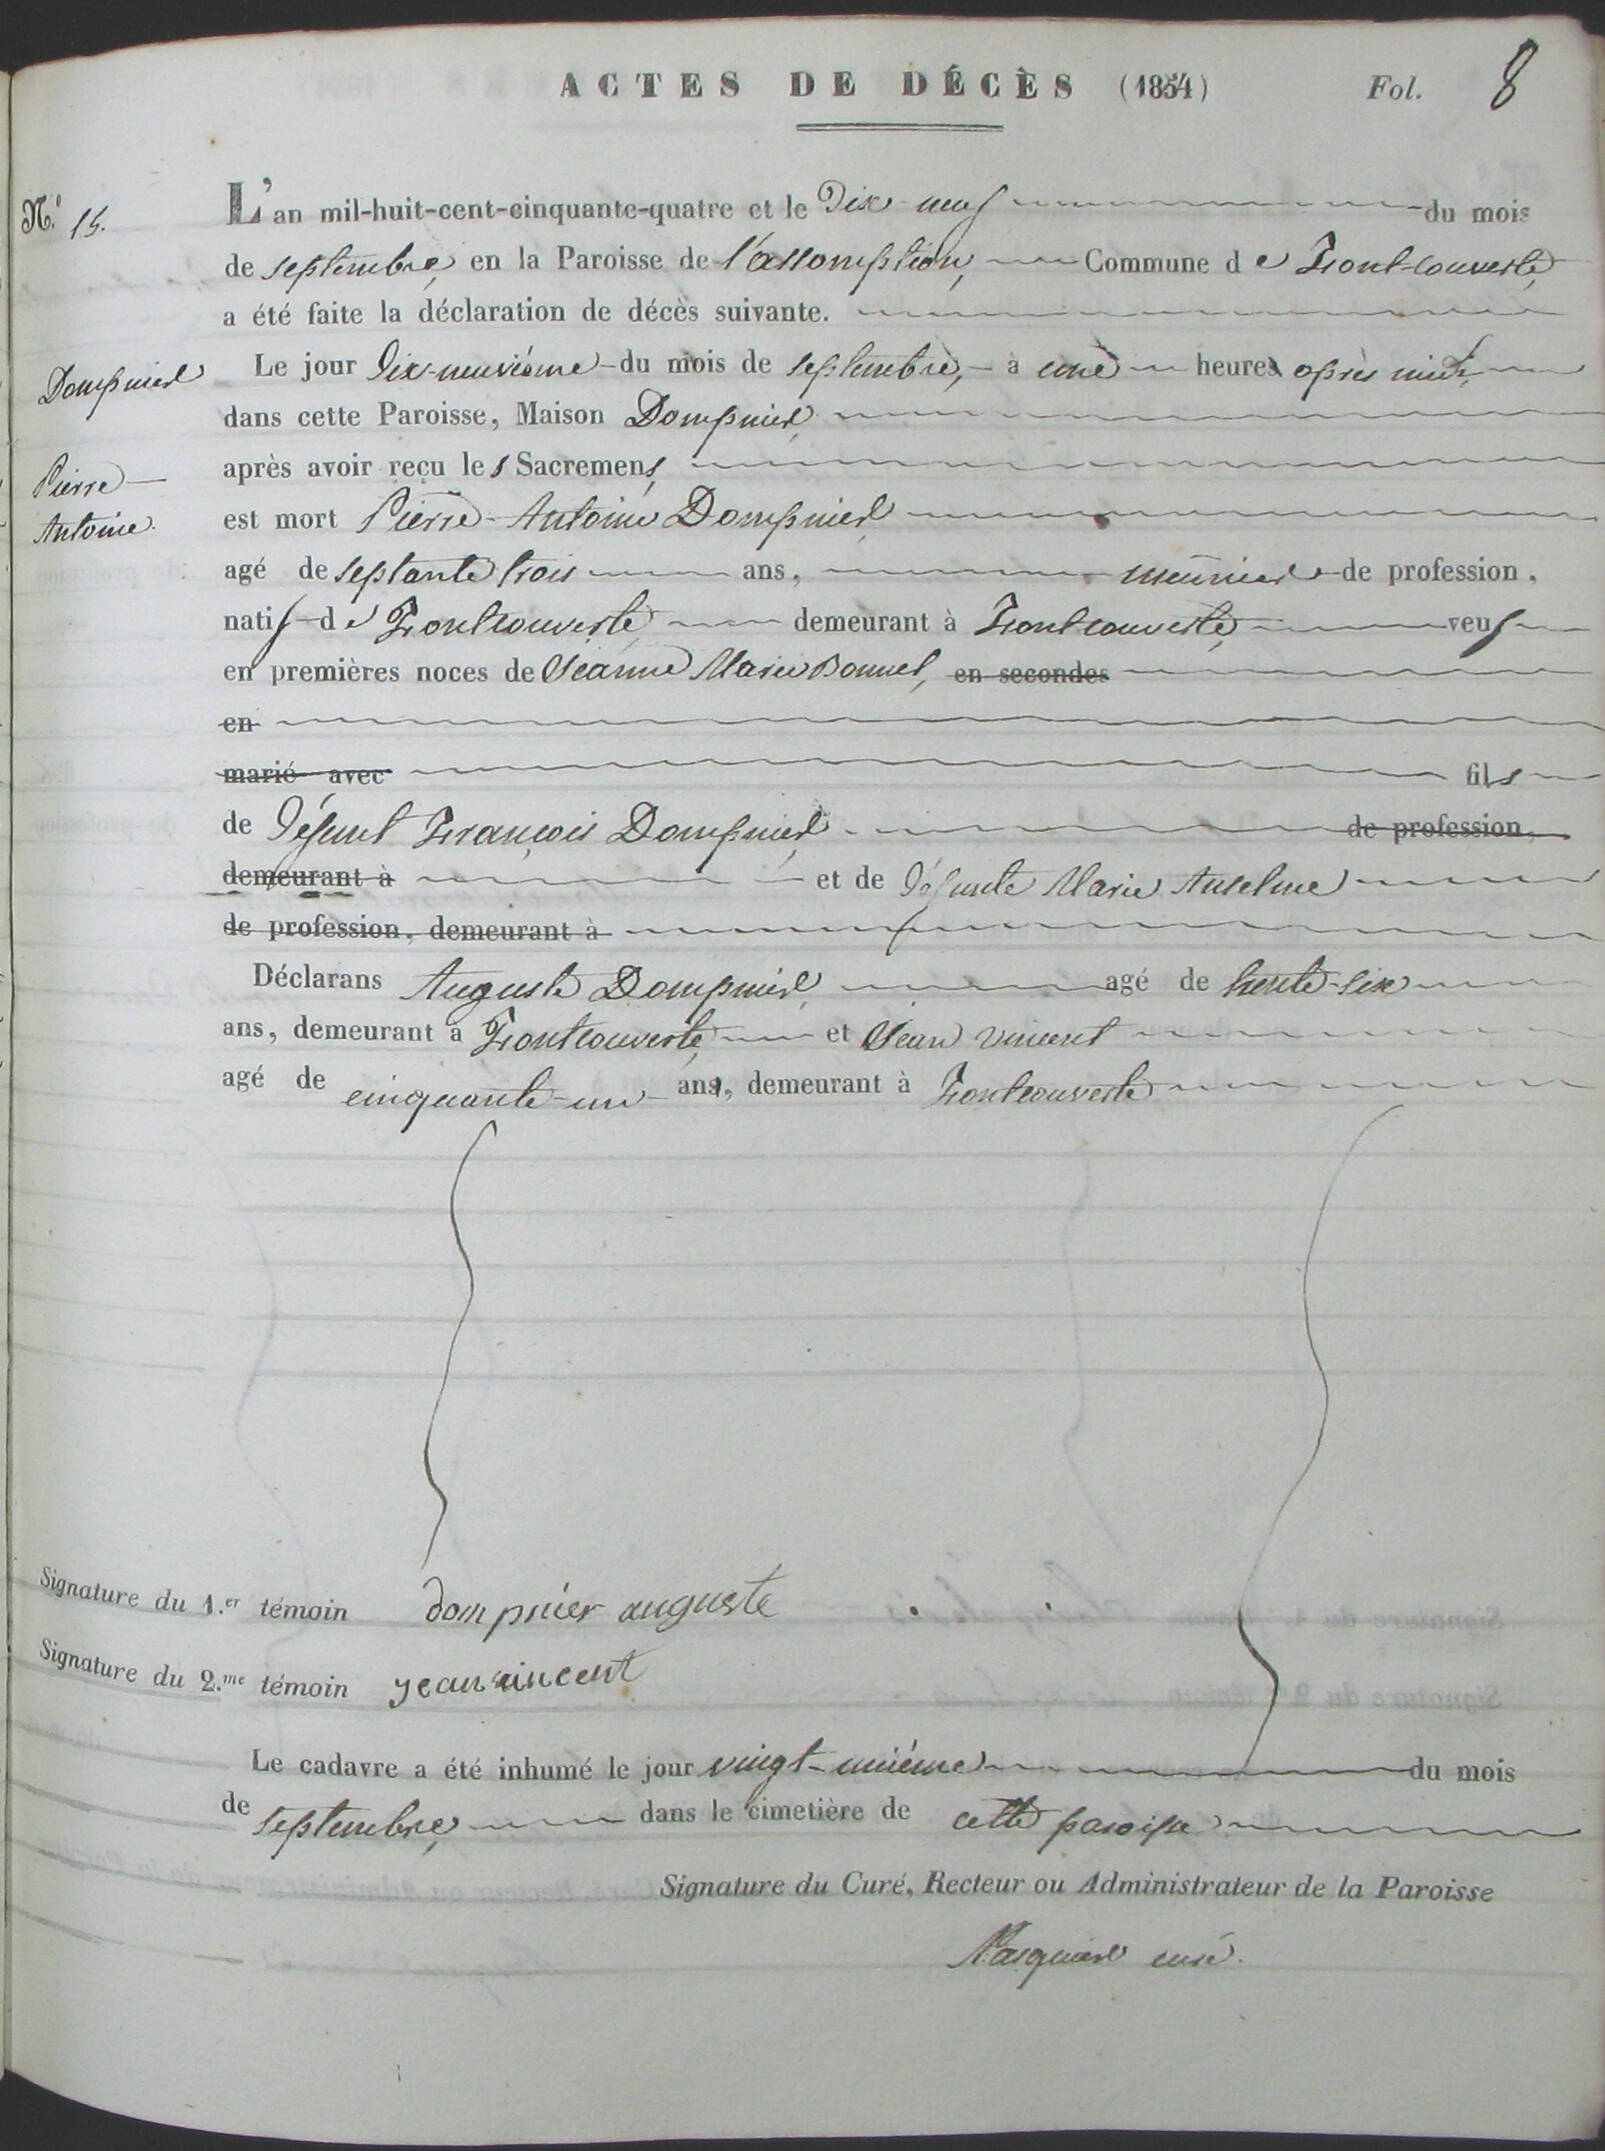 ACTES DE DÉCÈS (1854) Fol. 8
N.º 15.
L'an mil-huit-cent-cinquante-quatre et le Dix-neuf du mois
de septembre, en la Paroisse de l'assomption, Commune de Font-couverte,
a été faite la déclaration de décès suivante.
Dompnier
Le jour dix-neuvième du mois de septembre, à une heure après midi,
dans cette Paroisse, Maison Dompnier,
après avoir reçu les Sacremens,
Pierre-
Antoine.
est mort Pierre-Antoine Dompnier,
agé de septante trois ans, meunier de profession,
natif de Fontcouverte demeurant à Fontcouverte, veuf
en premières noces de Jeanne Marie Bonnel, en secondes
en
marié avec fils
de défunt François Dompnier, de profession,
demeurant à et de défunte Marie Anselme
de profession, demeurant à
Déclarans Auguste Dompnier, agé de trente-six
ans, demeurant à Fontcouverte, et Jean vincent
agé de cinquante-un ans, demeurant à Fontcouverte
Signature du 1.er témoin dompnier auguste
Signature du 2.me témoin jean vincent
Le cadavre a été inhumé le jour vingt-unième du mois
de septembre, dans le cimetière de cette paroisse
Signature du Curé, Recteur ou Administrateur de la Paroisse
curé.